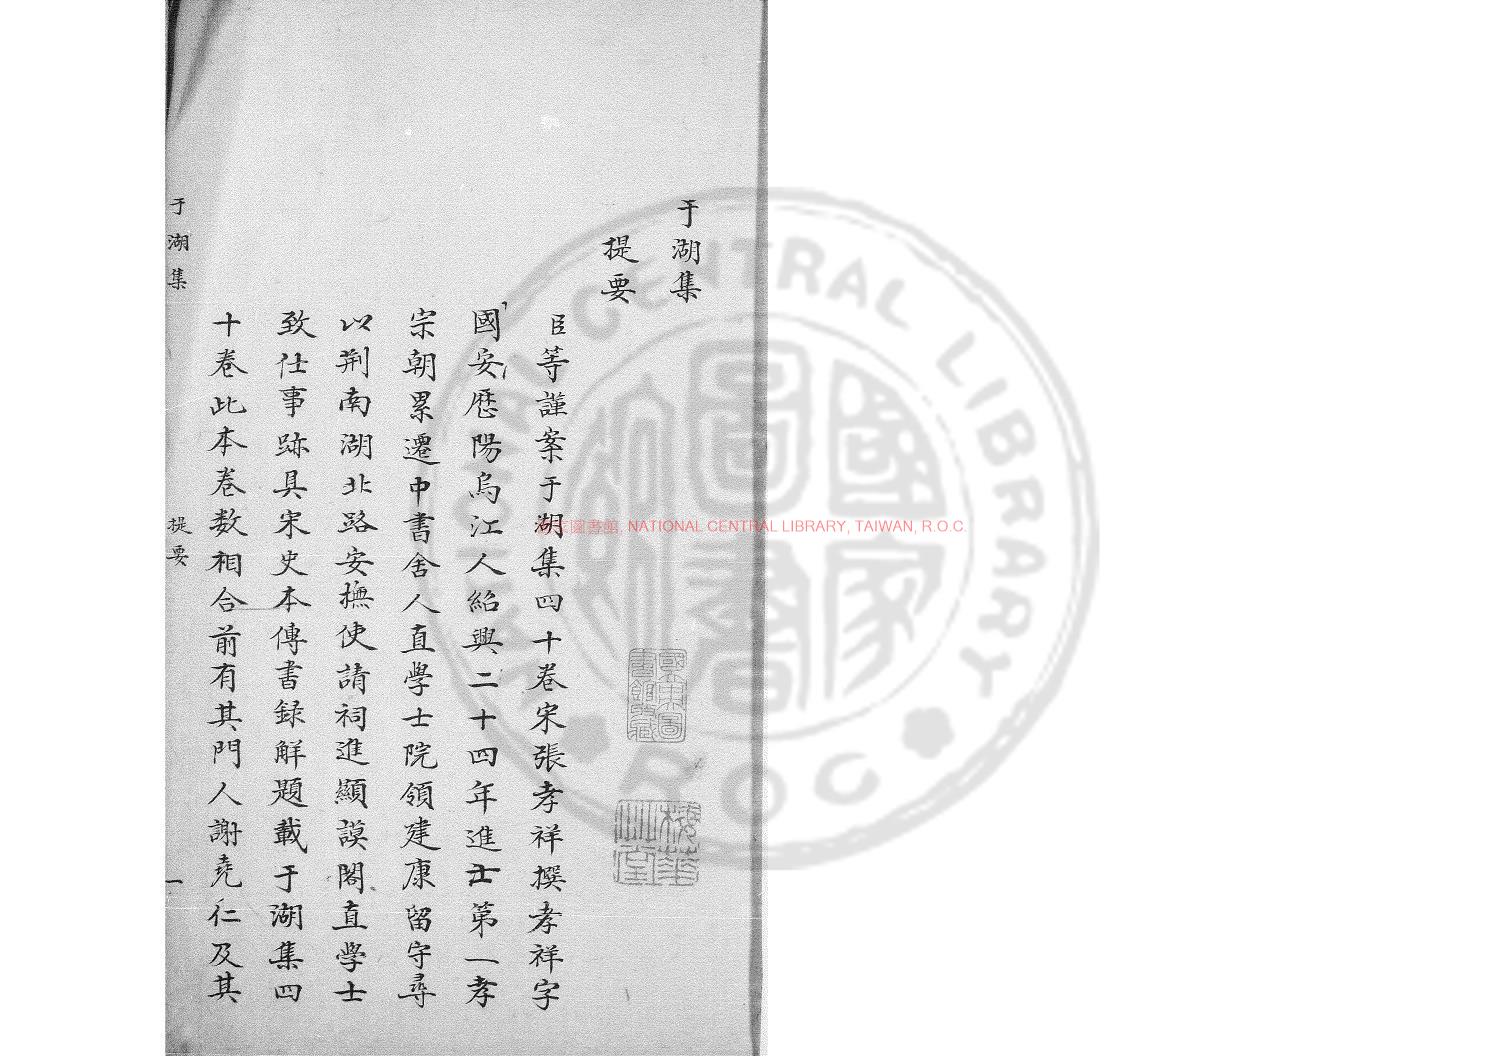 于湖集
提要
臣等謹案于湖集四十卷宋張孝祥撰孝祥字
國安歷陽烏江人紹興二十四年進士第一孝
宗朝累遷中書舍人直學士院領建康留守尋
以荆南湖北路安撫使請祠進顯謨閣直學士
致仕事跡具宋史本傳書録解題載于湖集四
十卷此本卷數相合前有其門人謝堯仁及其
于湖集 提要 一
國立中央圖書館藏
國家圖書館, NATIONAL CENTRAL LIBRARY, TAIWAN, R.O.C.
NATIONAL CENTRAL LIBRARY
ROC
國家圖書館